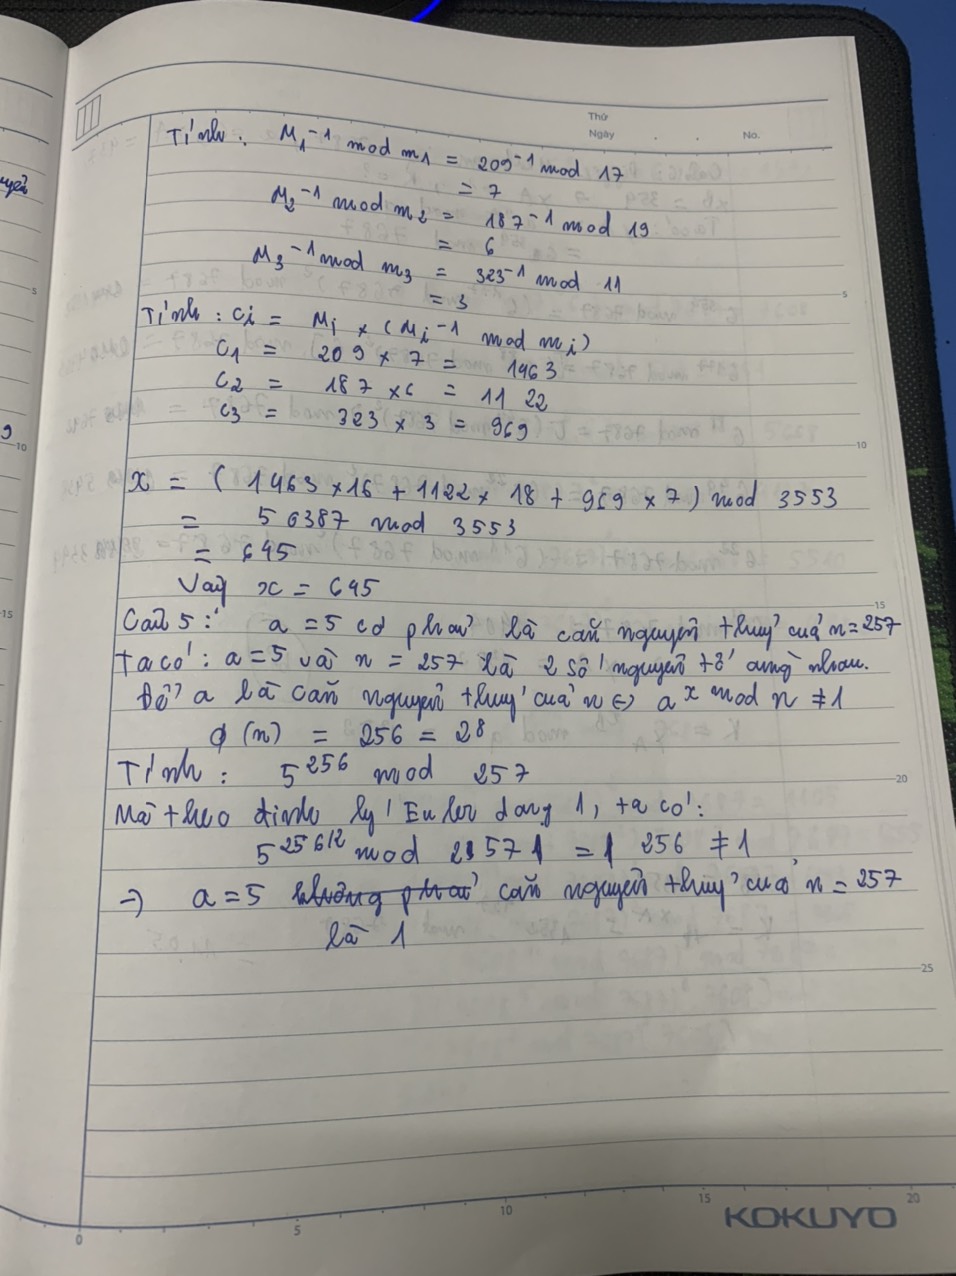 Thứ
Ngày . . No.
Tính: M₁⁻¹ mod m₁ = 209⁻¹ mod 17
= 7
M₂⁻¹ mod m₂ = 187⁻¹ mod 19
= 6
M₃⁻¹ mod m₃ = 323⁻¹ mod 11
= 3
Tính: ci = Mi × (Mi⁻¹ mod mi)
C1 = 209 × 7 = 1463
C2 = 187 × 6 = 1122
C3 = 323 × 3 = 969
x = (1463 × 16 + 1122 × 18 + 969 × 7) mod 3553
= 56387 mod 3553
= 645
Vậy x = 645
Câu 5: a = 5 có phải là căn nguyên thuỷ của n = 257
Ta có: a = 5 và n = 257 là 2 số nguyên tố cùng nhau.
Để a là căn nguyên thuỷ của n ⇔ aˣ mod n ≠ 1
ϕ(n) = 256 = 2⁸
Tính: 5²⁵⁶ mod 257
Mà theo định lý Euler dạng 1, ta có:
5²⁵⁶/² mod 257 = 256 ≠ 1
⇒ a = 5 không phải căn nguyên thuỷ của n = 257
là 1
5
10
15
20
25
5
10
15
0
5
10
15
20
KOKUYO